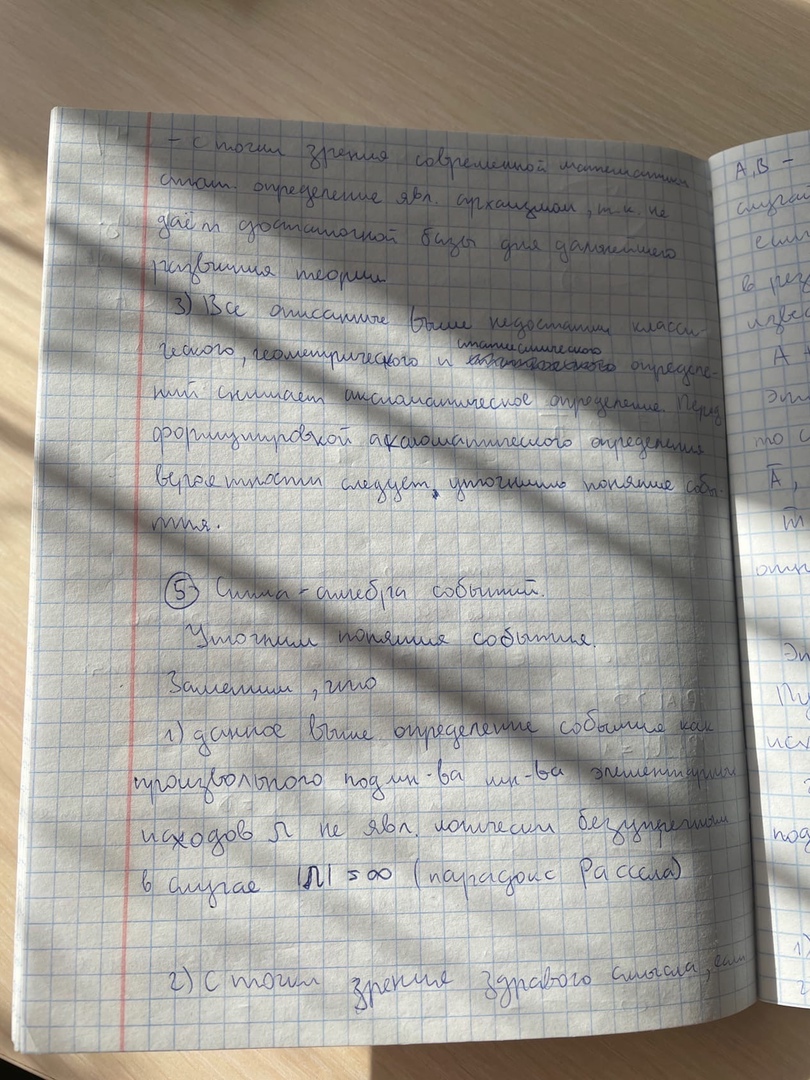 - с точки зрения современной математики
стат. определение явл. архаизмом, т.к. не
даёт достаточной базы для дальнейшего
развития теории
3) Все описанные выше недостатки класси-
ческого, геометрического и статистического определе-
ний снимает аксиоматическое определение. Перед
формулировкой аксиоматического определения
вероятности следует уточнить понятие собы-
тия.
⑤ Сигма-алгебра событий.
Уточним понятия события.
Заметим, что
1) данное выше определение события как
произвольного подмн-ва мн-ва элементарных
исходов Ω не явл. логически безупречным
в случае |Ω| = ∞ (парадокс Рассела)
2) с точки зрения здравого смысла, если
A, B -
случа
если
в рез
A
эт
то с
Ā,
m̅
Эт
Пу
исх
под
1)
2